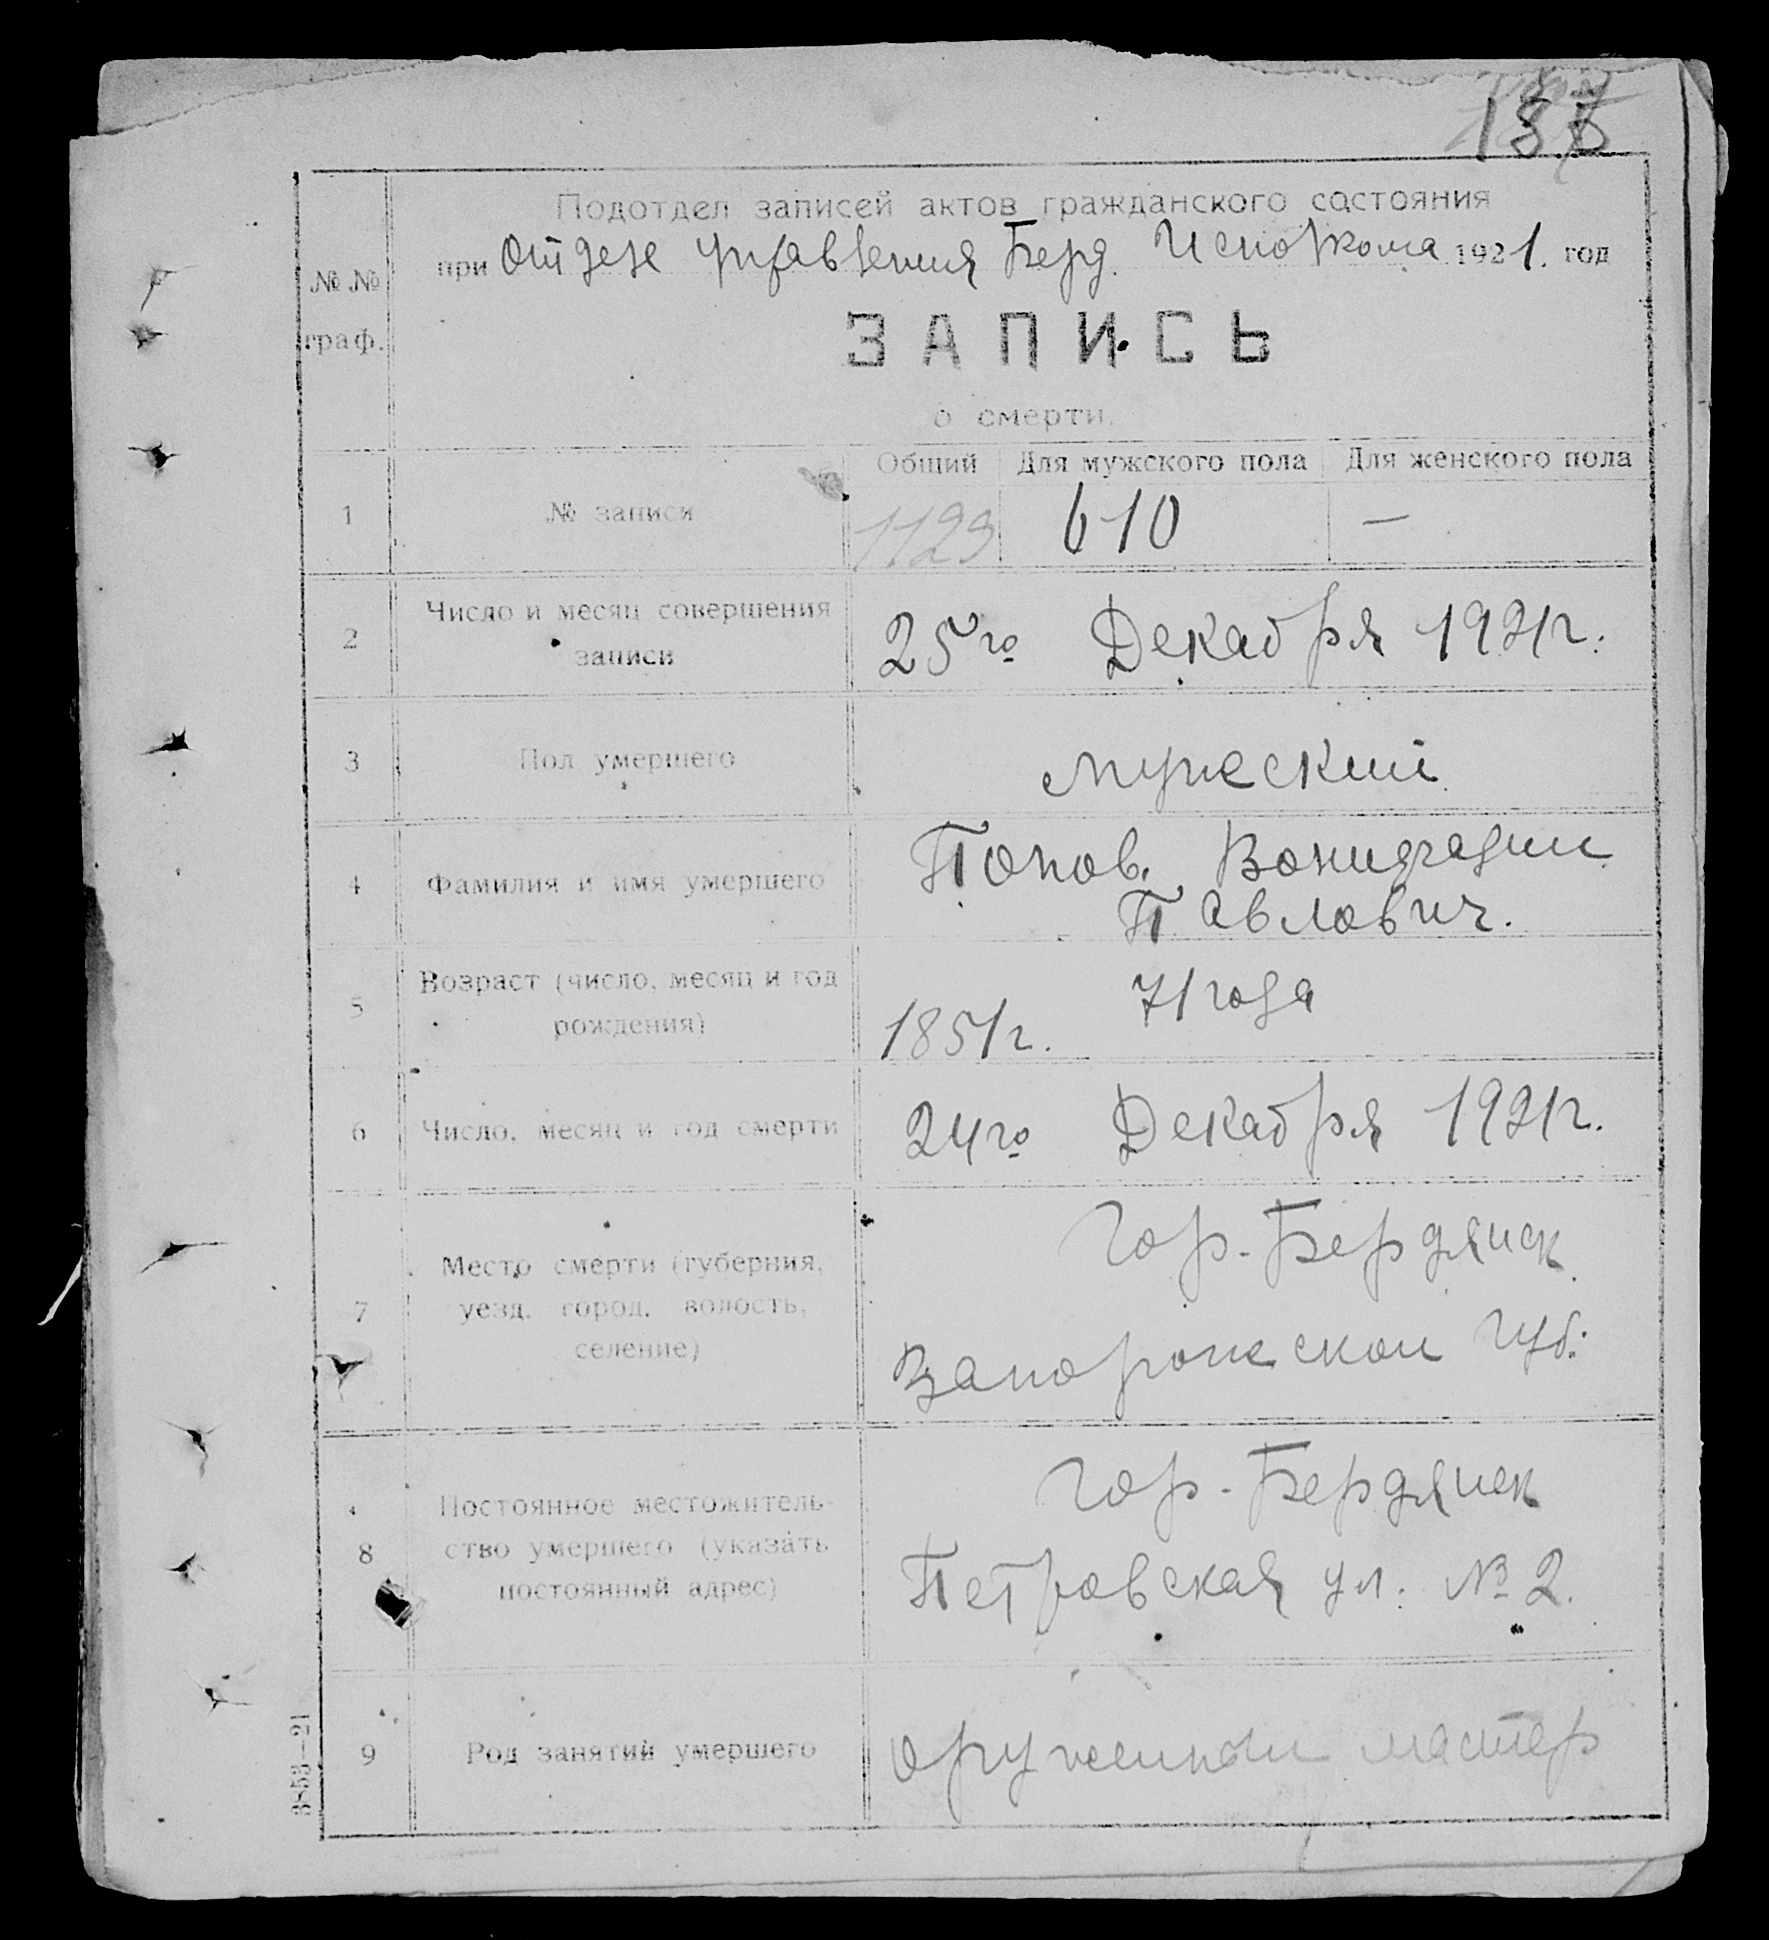 Подотдел записей актов гражданского состояния
при Отделе управления Берд. Исполкома 1921. год
№ № граф.
ЗАПИСЬ
о смерти.
Общий Для мужского пола Для женского пола
1 № записи 1123 610 —
2 Число и месяц совершения записи 25го Декабря 1921г.
3 Пол умершего мужеский
4 Фамилия и имя умершего Попов
Павлович.
5 Возраст (число, месяц и год рождения) 71 года
1851г.
6 Число, месяц и год смерти 24го Декабря 1921г.
7 Место смерти (губерния, уезд, город, волость, селение) Гор. Бердянск
Запорожской губ.
8 Постоянное местожитель-
ство умершего (указать
постоянный адрес)
Гор. Бердянск
Петровская ул. № 2.
9 Род занятий умершего оружейный мастер